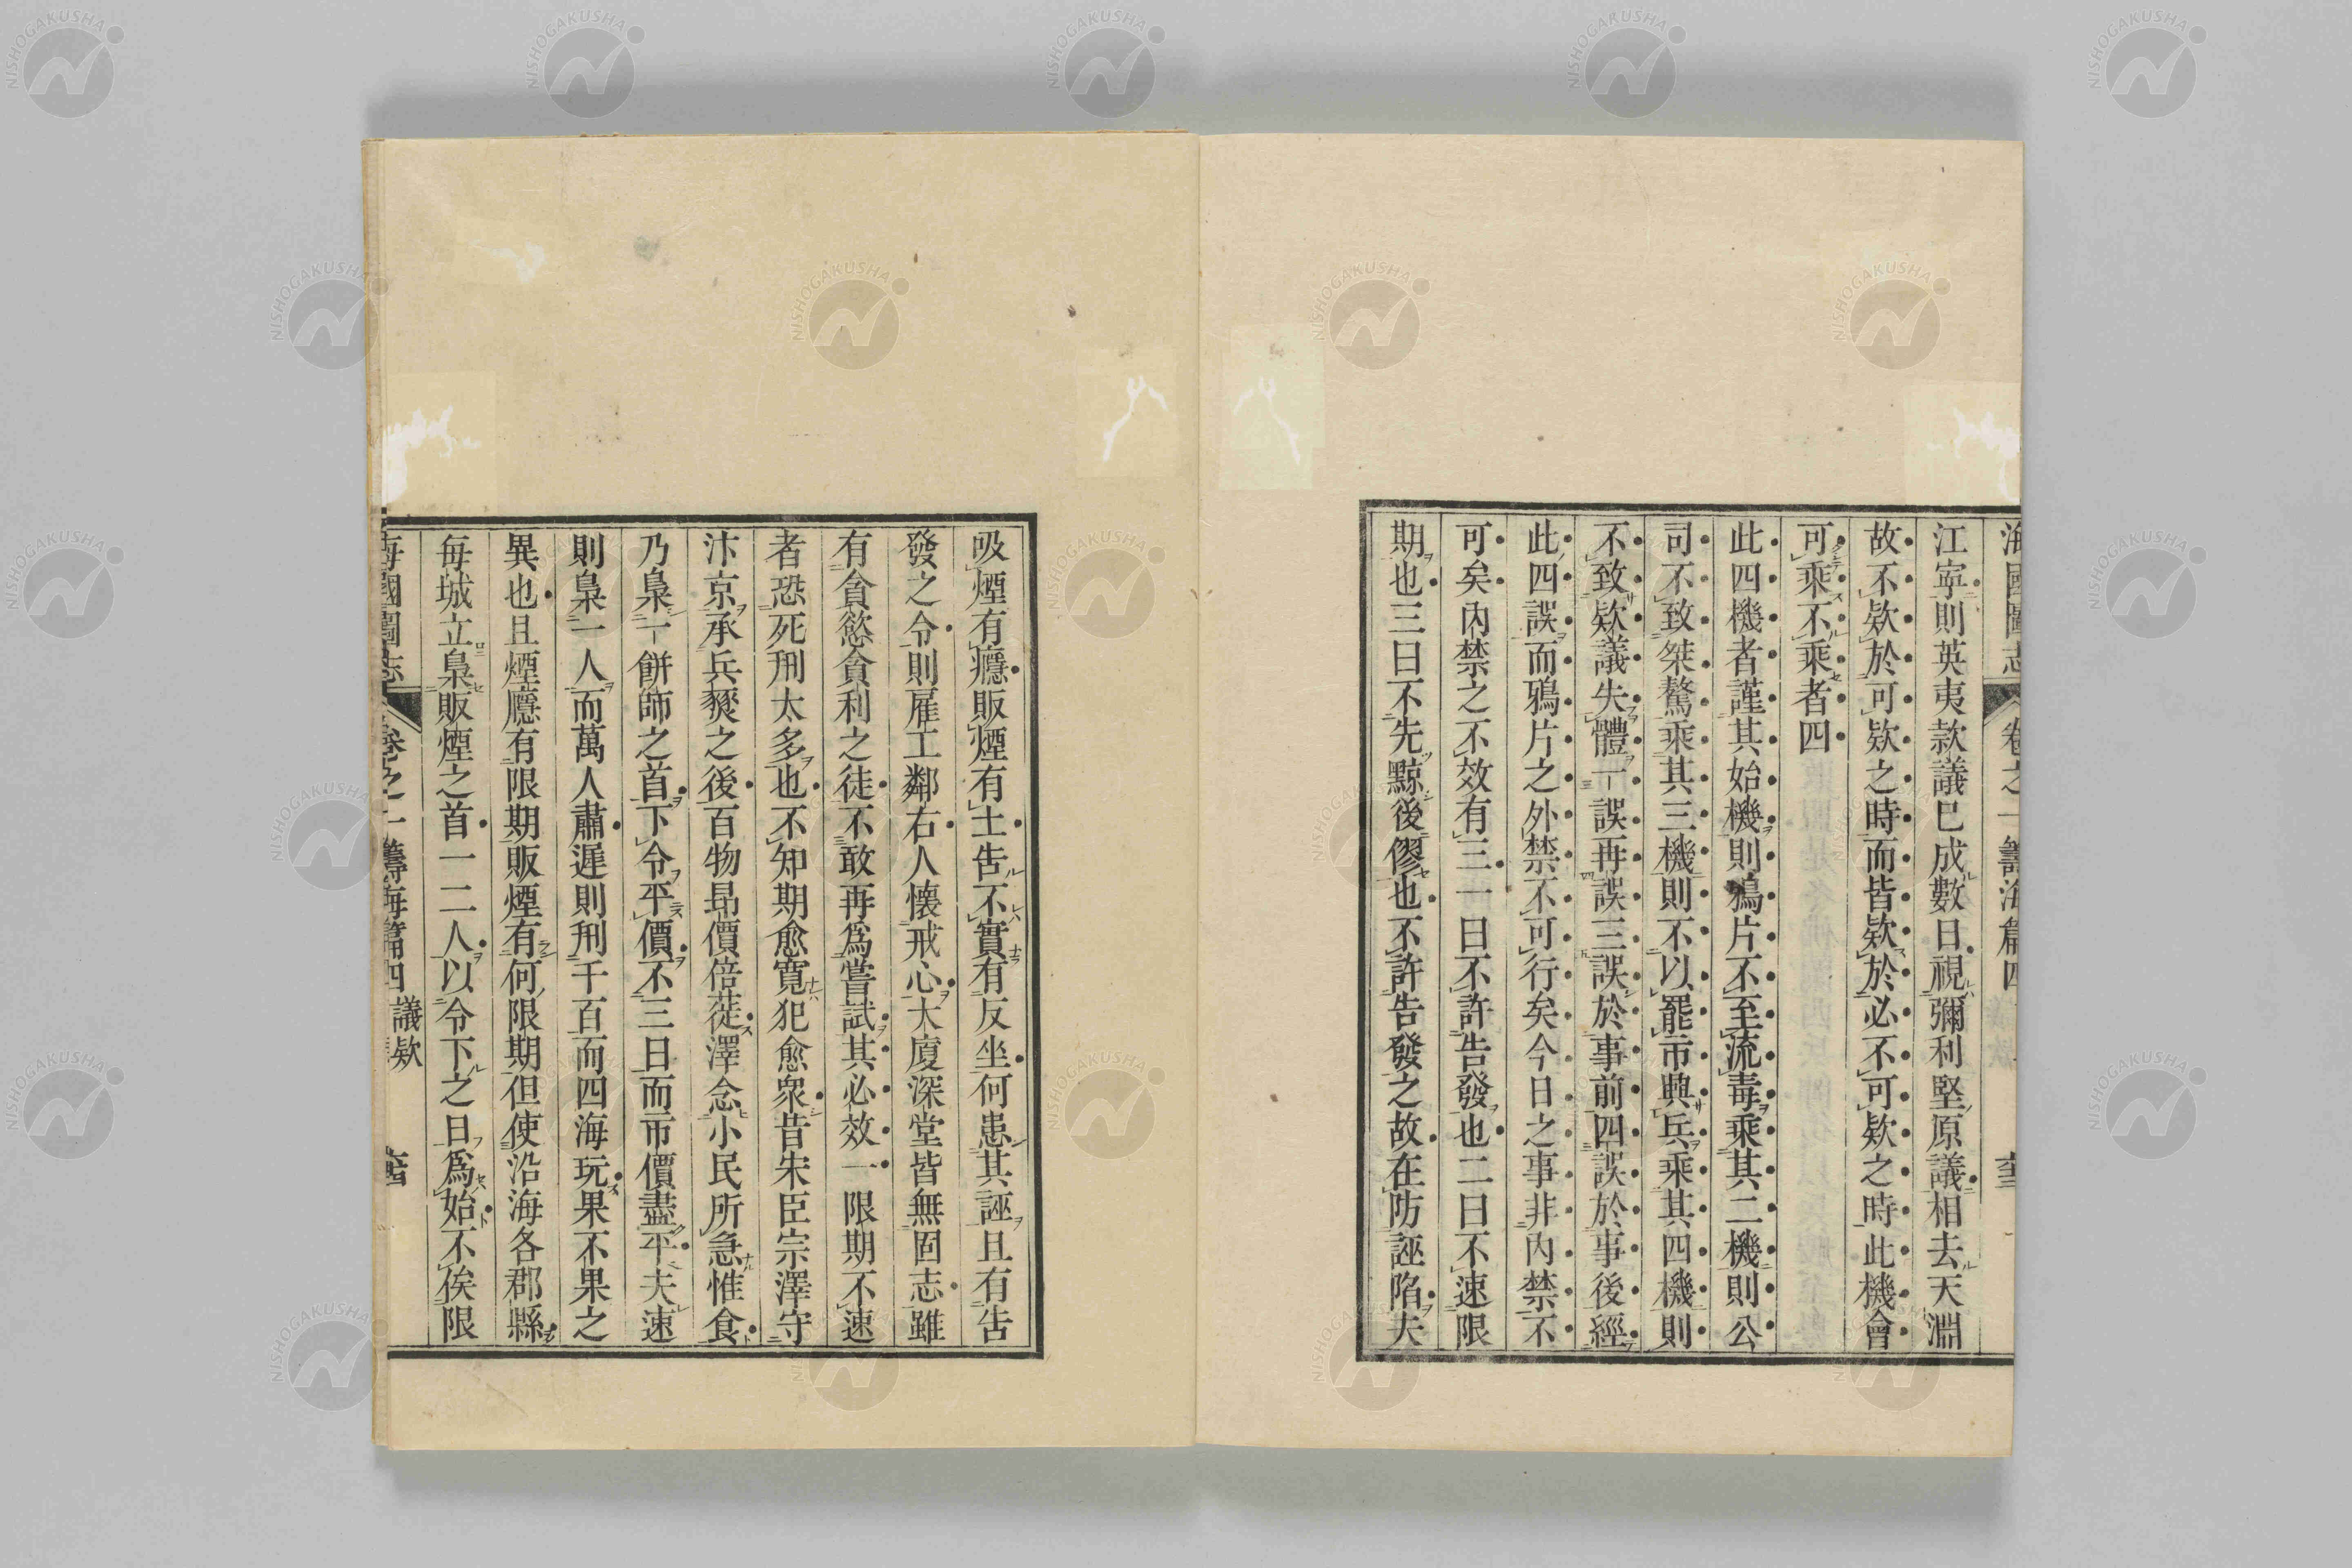 海國圖志 卷之一 籌海篇四
江寧則英夷款議巳成數日視彌利堅原議相去天淵
故不欵於可欵之時而皆欵於必不可欵之時此機會
可乘不乘者四
此四機者謹其始機則鴉片不至流毒乘其二機則公
司不致桀驁乘其三機則不以罷市興兵乘其四機則
不致欵議失體一誤再誤三誤於事前四誤於事後經
此四誤而鴉片之外禁不可行矣今日之事非內禁不
可矣內禁之不效有三一曰不許告發也二曰不速限
期也三曰不先黥後僇也不許告發之故在防誣陷夫
吸煙有癮販煙有土告不實有反坐何患其誣且有告
發之令則雇工鄰右人懷戒心大廈深堂皆無固志雖
有貪慾貪利之徒不敢再爲嘗試其必效一限期不速
者恐死刑太多也不知期愈寬犯愈衆昔宋臣宗澤守
汴京承兵燹之後百物昂價倍蓰澤念小民所急惟食
乃梟一餅師之首下令平價不三日而市價盡平夫速
則梟一人而萬人肅遲則刑千百而四海玩果不果之
異也且煙癮有限期販煙有何限期但使沿海各郡縣
每城立梟販煙之首一二人以令下之日爲始不俟限
海國圖志 卷之一 籌海篇四 議欵
NISHOGAKUSHA